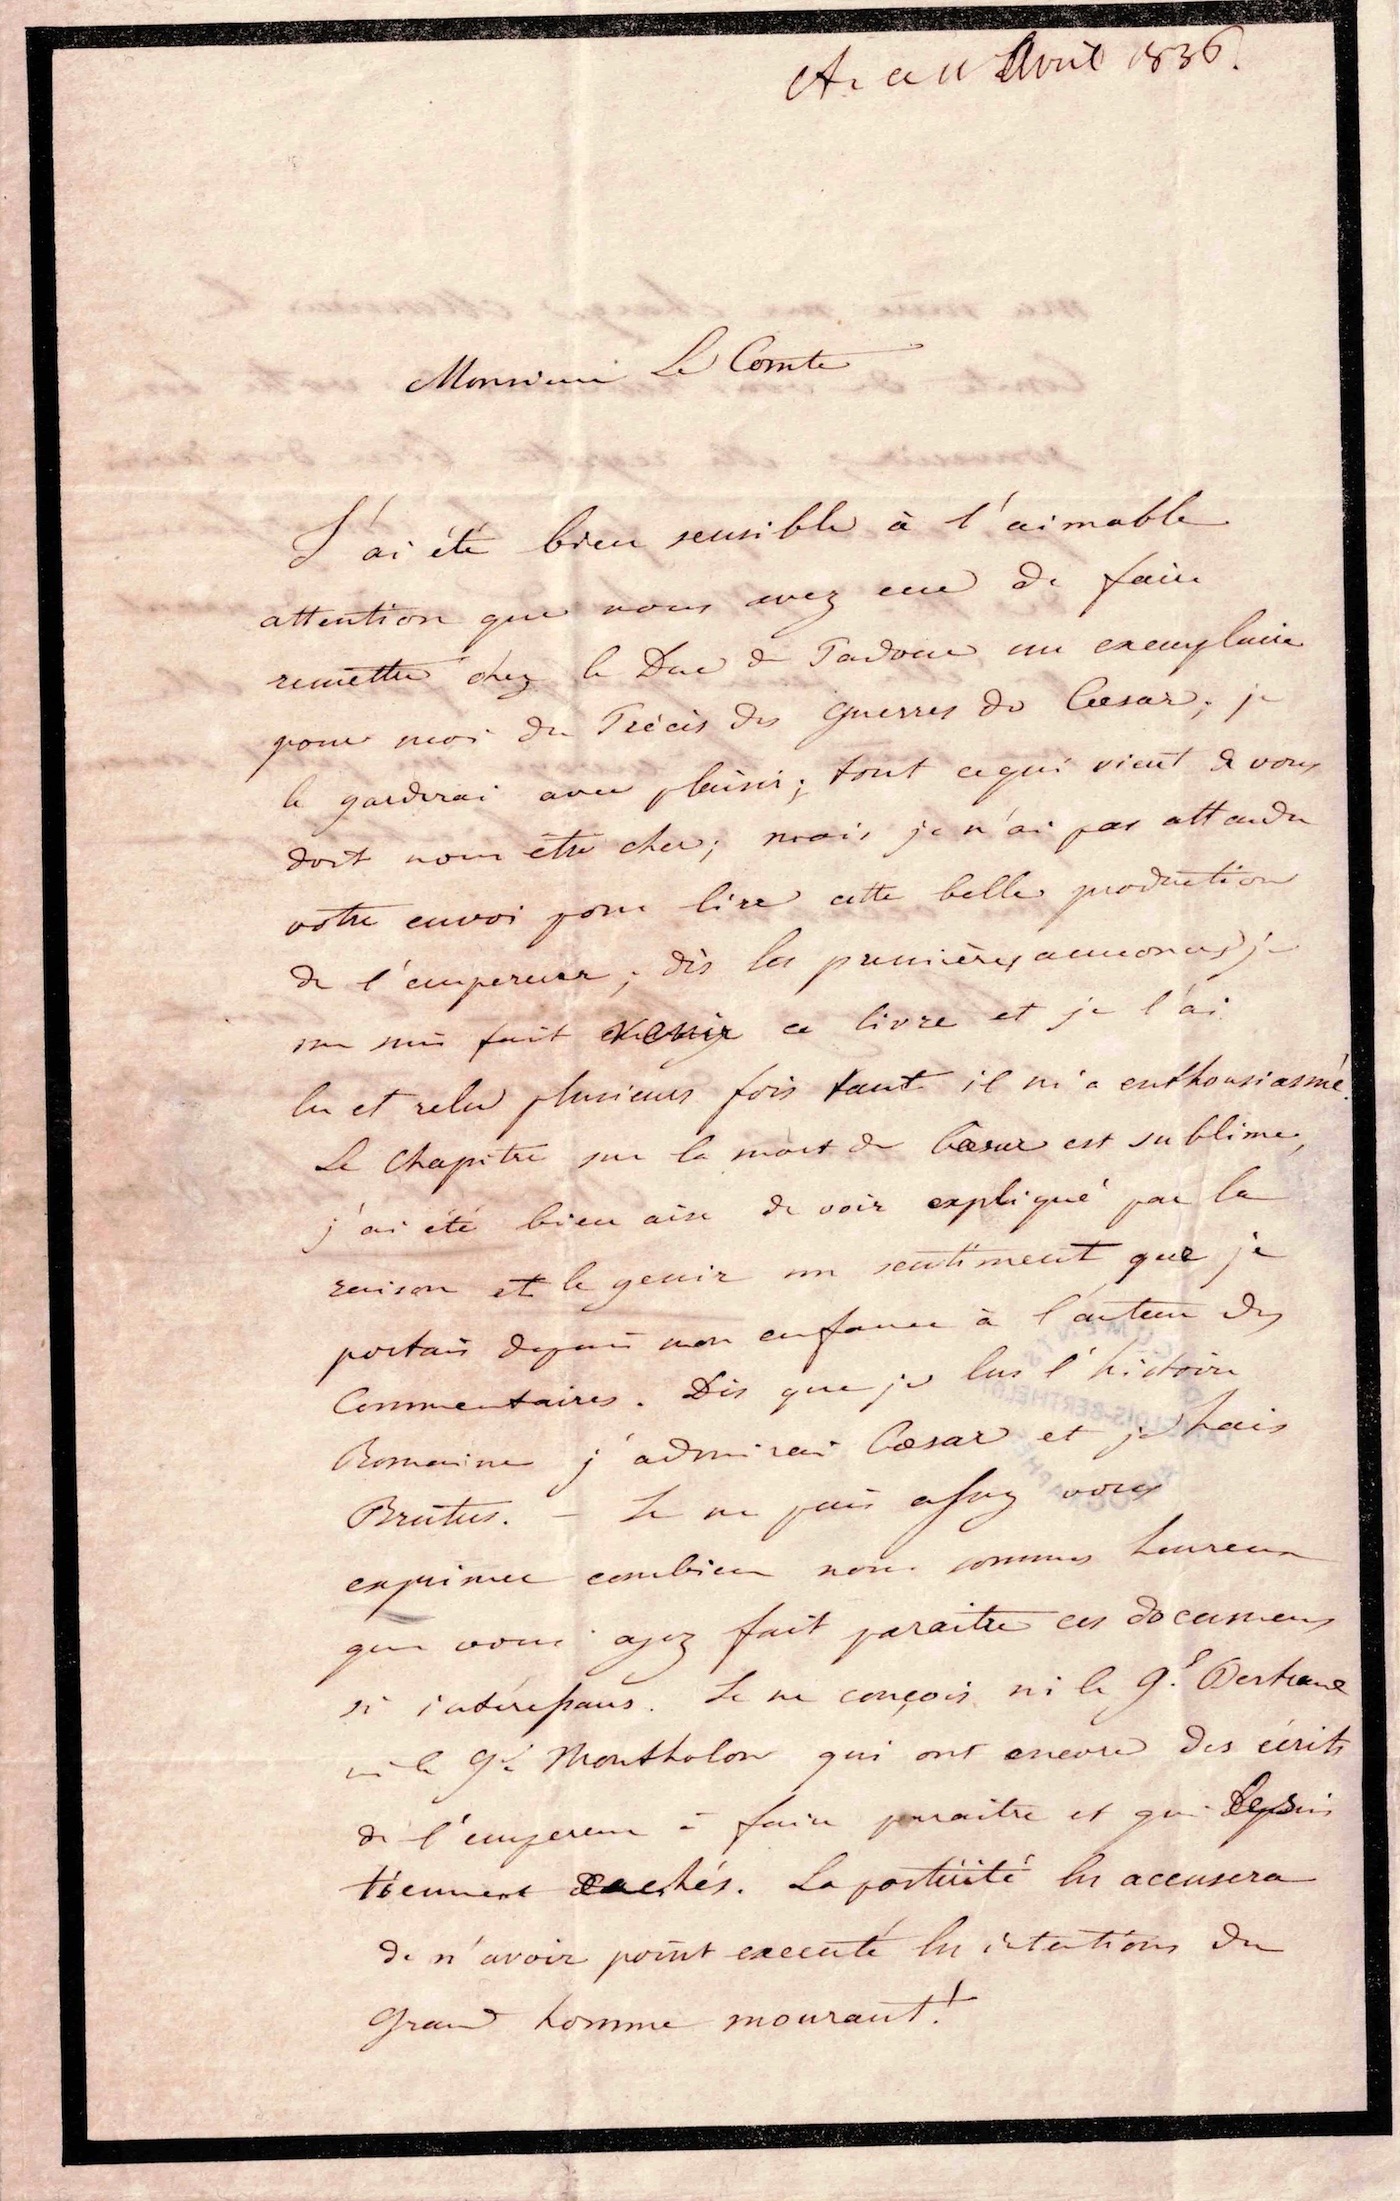 A. ce 11 Avril 1836.
Monsieur Le Comte
J'ai été bien sensible à l'aimable
attention que vous avez eue de faire
remettre chez le Duc de Padoue un exemplaire
pour moi du Précis des Guerres de Cæsar; je
le garderai avec plaisir; tout ce qui vient de vous
doit nous être cher; mais je n'ai pas attendu
votre envoi pour lire cette belle production
de l'empereur; dès les premières annonces je
me suis fait venir ce livre et je l'ai
lu et relu plusieurs fois tant il m'a enthousiasmé.
Le Chapitre sur la mort de Cæsar est sublime,
j'ai été bien aise de voir expliqué par la
raison et le genie un sentiment que je
portais depuis mon enfance à l'auteur des
Commentaires. Dès que je lus l'histoire
Romaine j'admirai Cæsar et je hais
Brutus. — Je ne puis assez vous
exprimer combien nous sommes heureux
que vous ayez fait paraitre ces documens
si intéressans. Je ne conçois ni le Gl. Bertrand
ni le Gl. Montholon qui ont encore des écrits
de l'empereur à faire paraitre et qui les
tiennent cachés. La postérité les accusera
de n'avoir point executé les intentions du
Grand homme mourant!